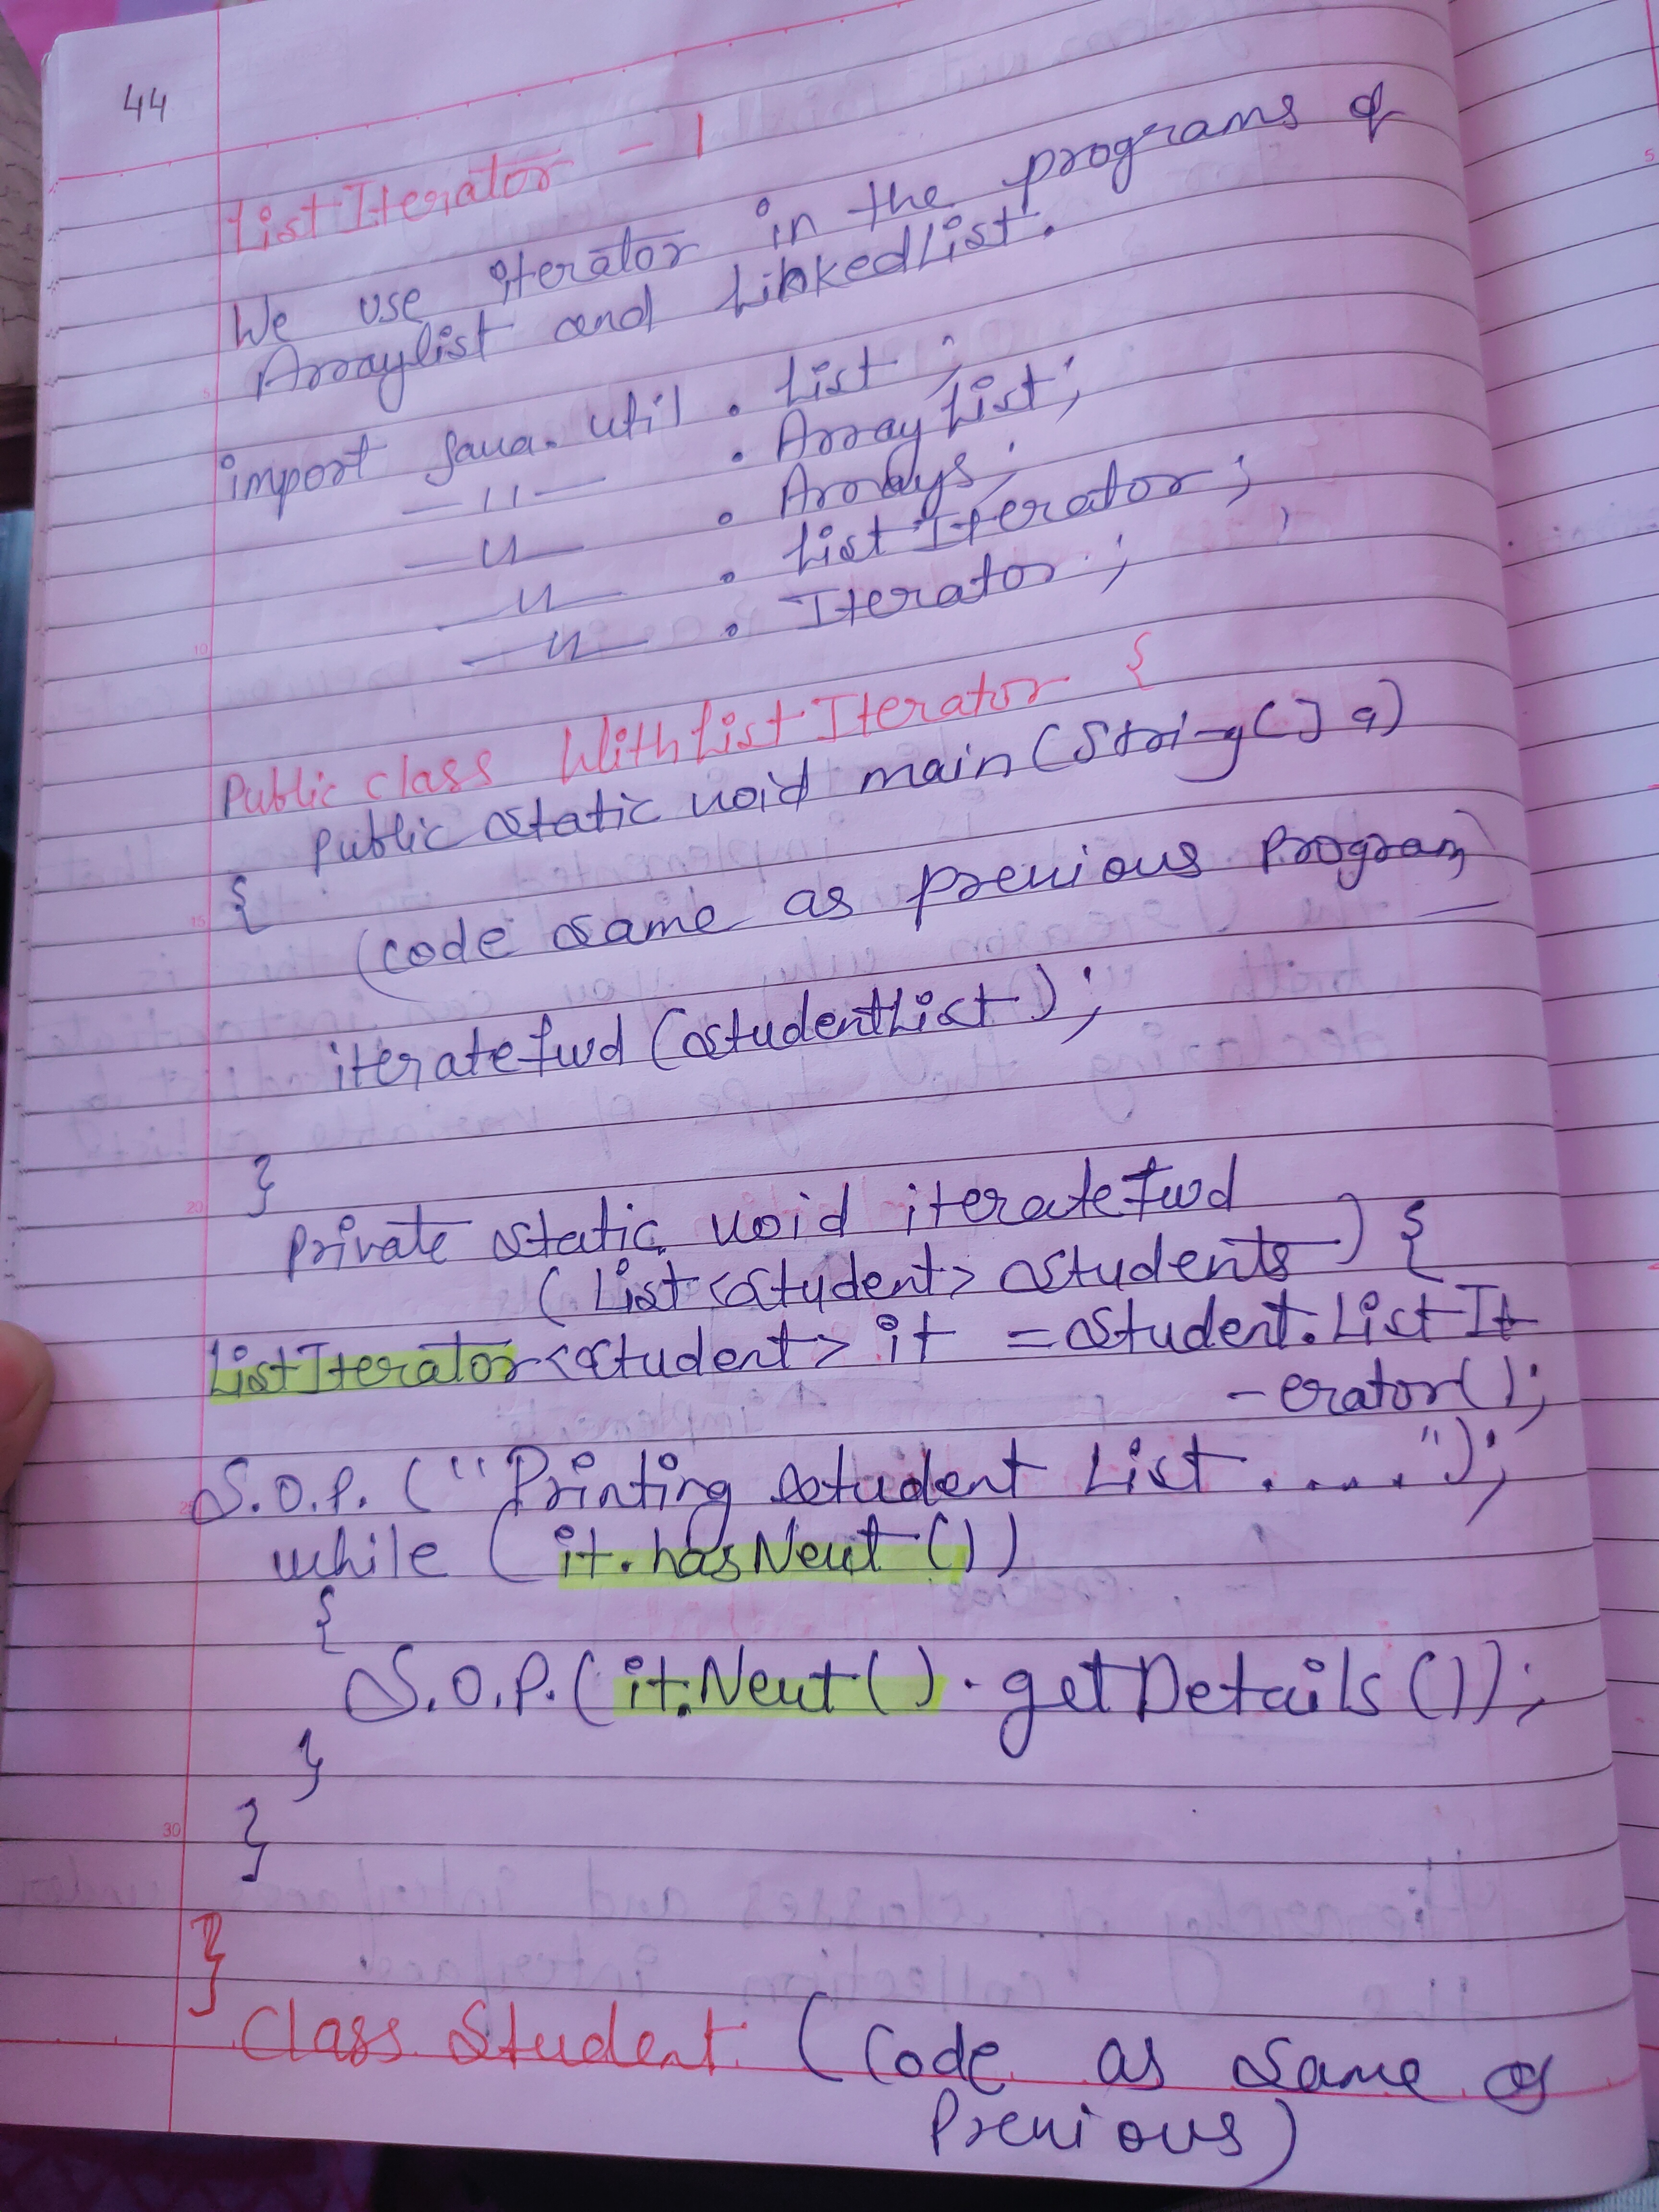 44
ListIterator - 1
We use iterator in the programs of
Arraylist and LinkedList.
import java.util . List ;
—11— . ArrayList;
—11— . Arrays;
—11— . ListIterator;
—11— . Iterator;
Public class WithListIterator {
public static void main(String[] a)
{
(code same as previous program)
iterateFwd (studentList);
}
private static void iterateFwd
(List<Student> students) {
ListIterator<Student> it = Student.ListIt
-erator();
S.O.P. ("Printing student List .....");
while (it.hasNext())
{
S.O.P.(it.Next().getDetails());
}
}
}
Class Student (Code as same of
Previous)
5
10
15
20
25
30
5